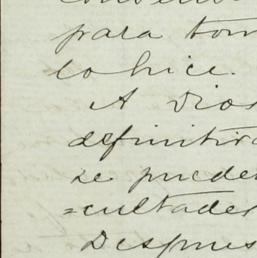 para tom
lo hice.
A Dios
definitiva
se pueden
=cultades
Despues